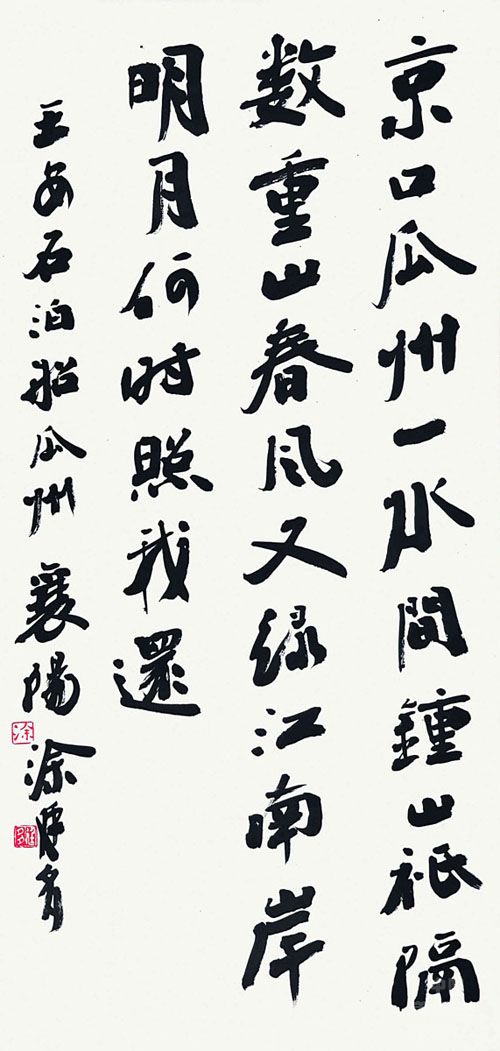 京口瓜州一水間鍾山祇隔
数重山春风又绿江南岸
明月何时照我還
王安石泊船瓜州 襄陽涂
涂